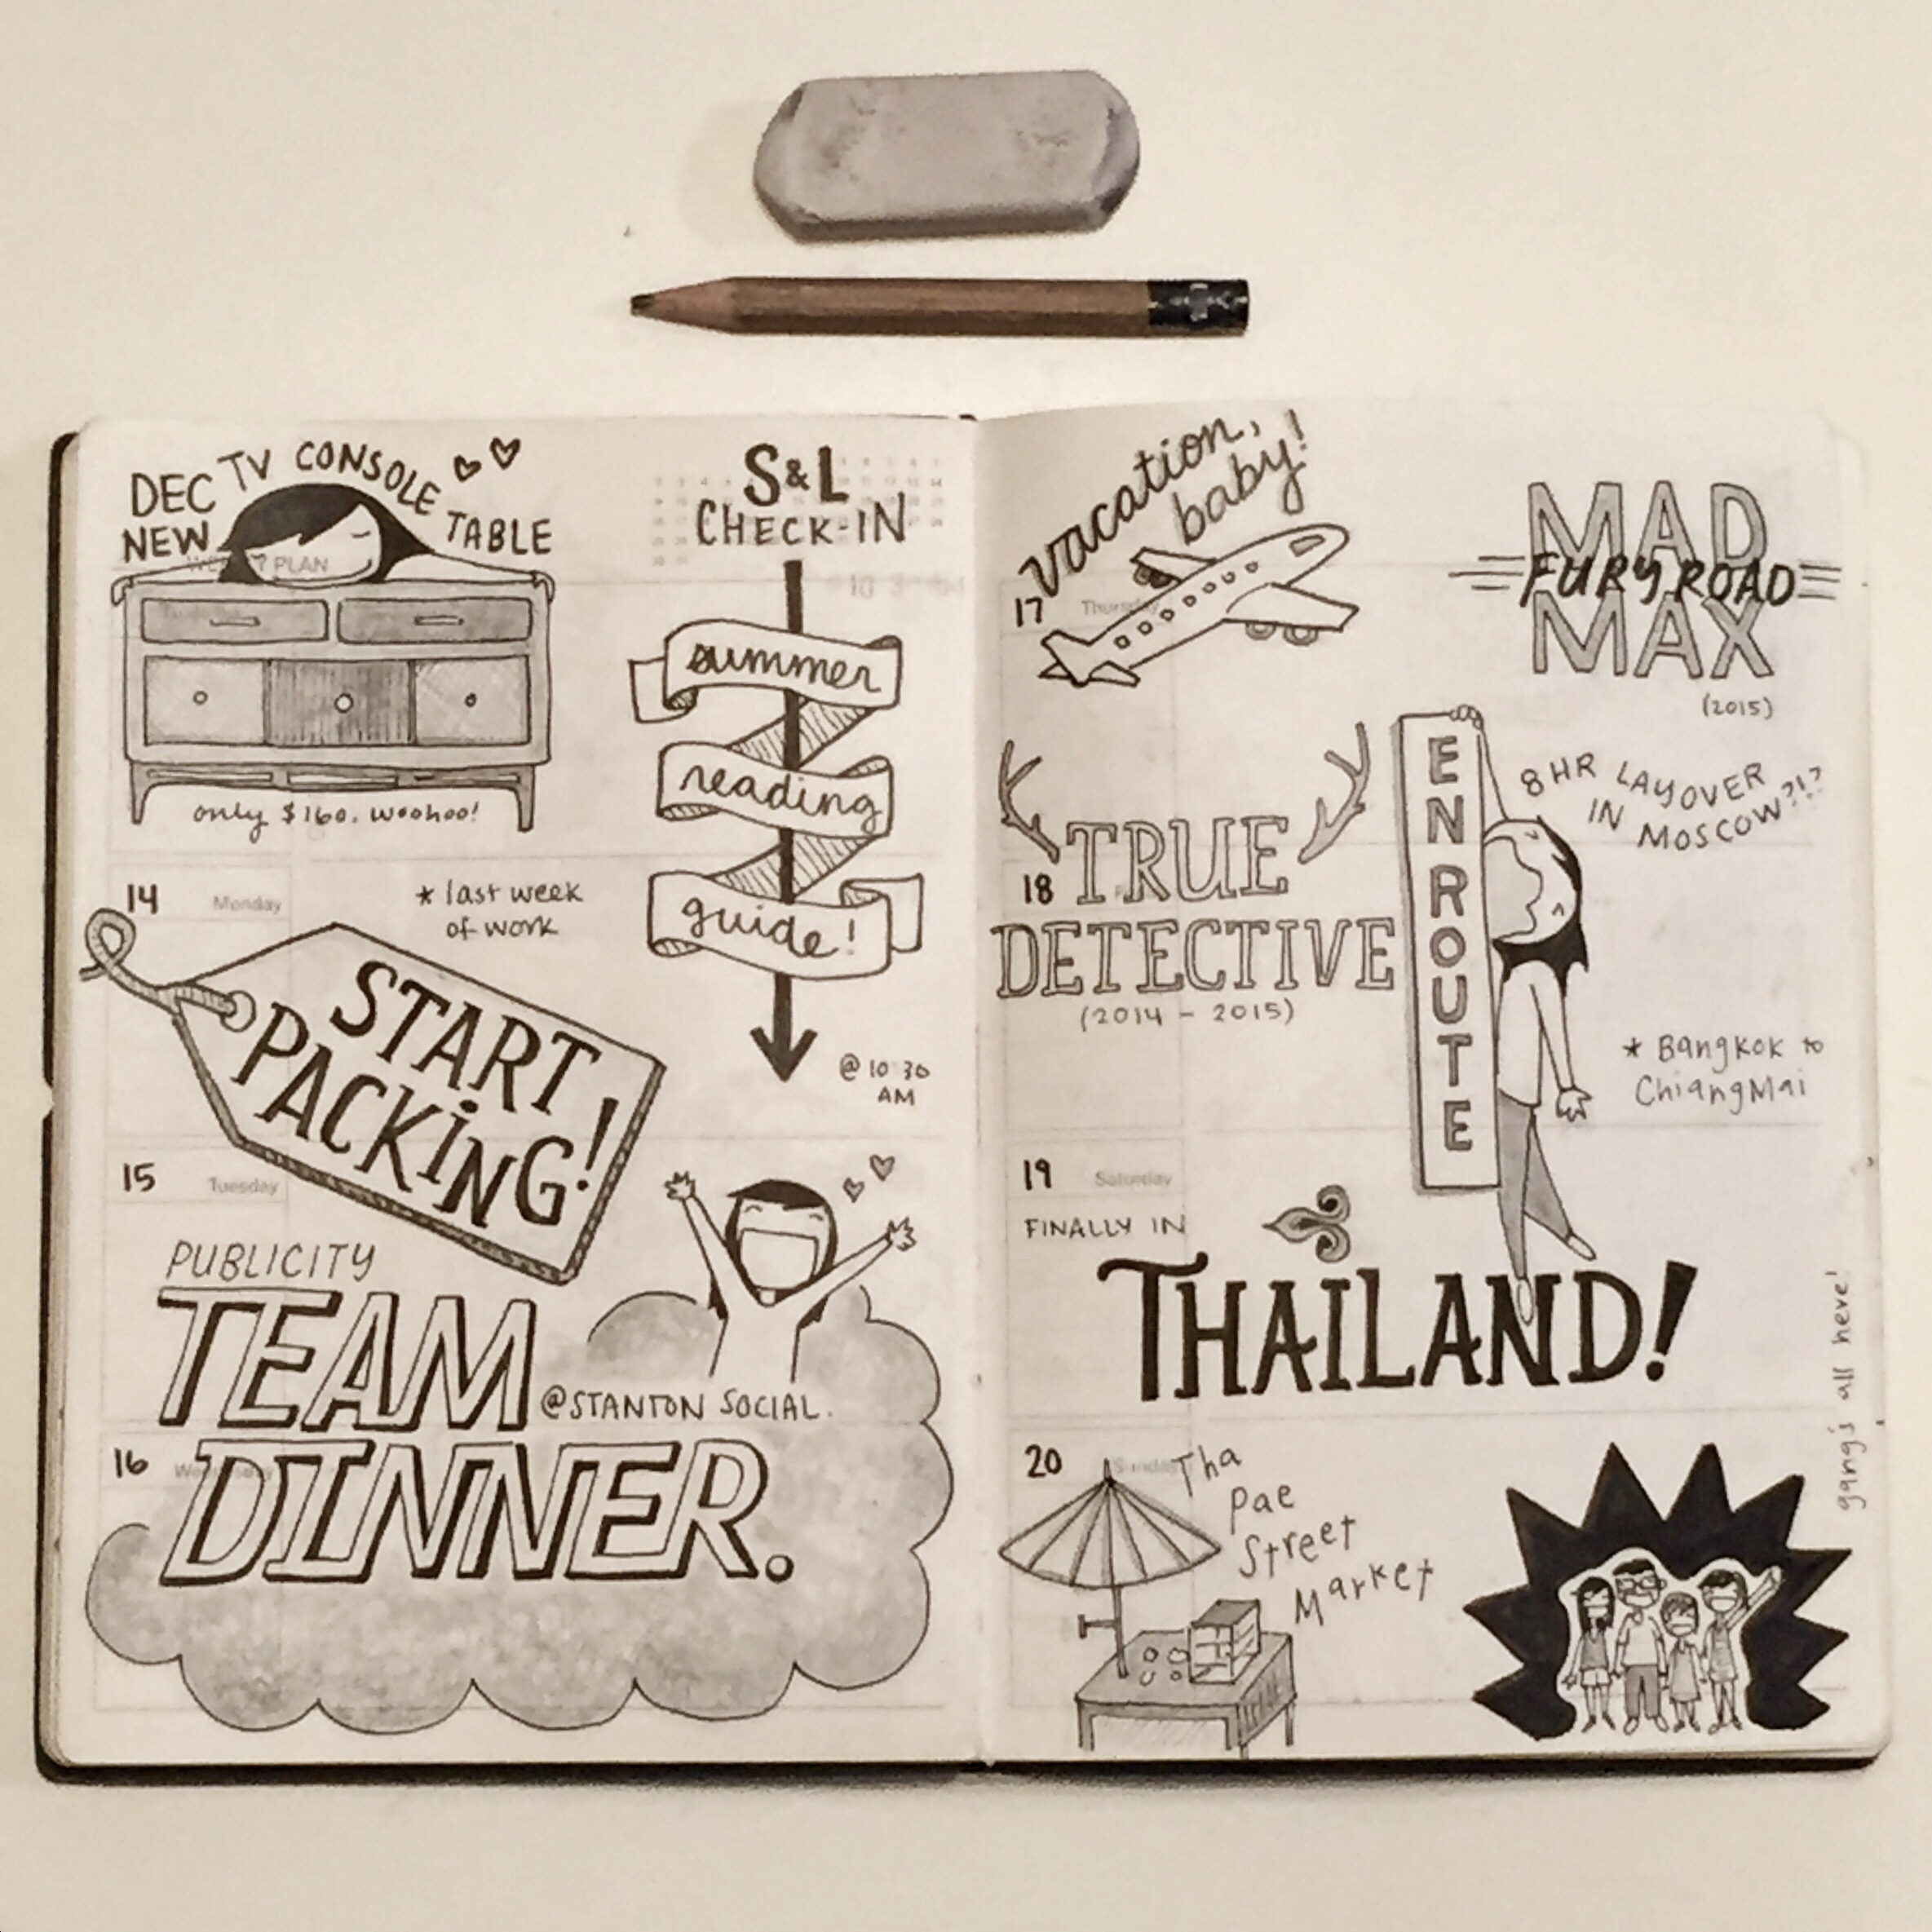 DEC TV CONSOLE
NEW TABLE
WEEKLY PLAN
only $160. woohoo!
S&L
CHECK-IN
summer
reading
guide!
@ 10:30
AM
14 Monday
* last week
of work
START
PACKiNG!
15 Tuesday
PUBLICITY
TEAM
@STANTON SOCIAL.
16 Wednesday
DINNER.
vacation,
baby!
17 Thursday
MAD
FURY ROAD
MAX
(2015)
18
TRUE
DETECTIVE
(2014 - 2015)
ENROUTE
8HR LAYOVER
IN MOSCOW?!?
* Bangkok to
ChiangMai
19 Saturday
FINALLY IN
THAiLAND!
20 Sunday
Tha
Pae
Street
Market
gang's all here!